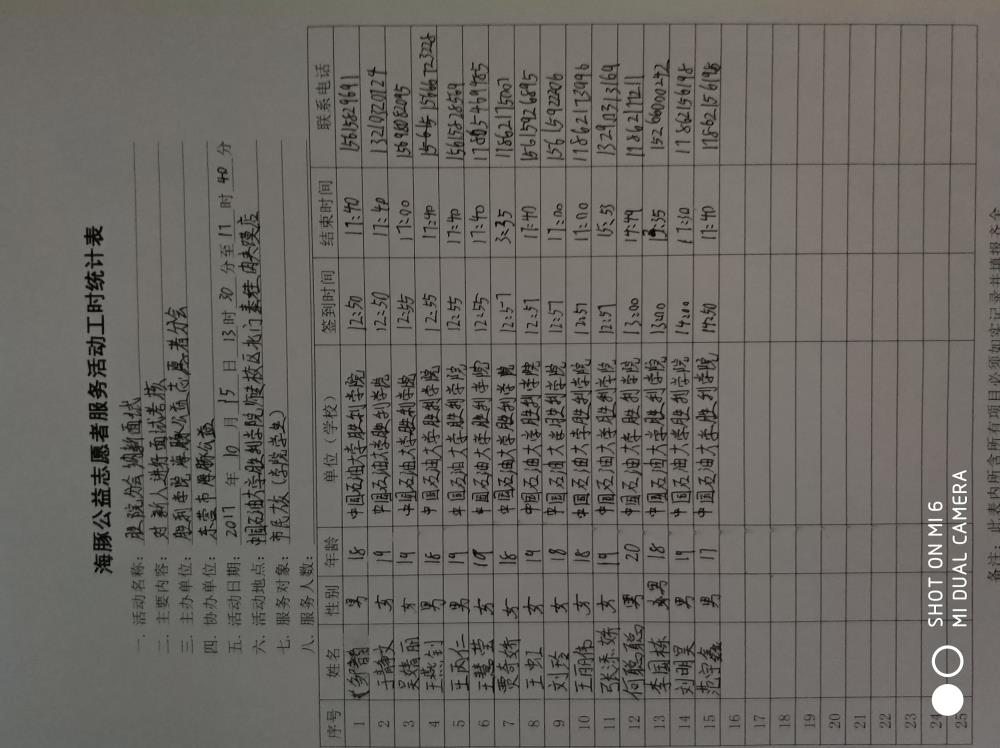 海豚公益志愿者服务活动工时统计表
一. 活动名称: 胜院分会纳新面试
二. 主要内容: 对新人进行面试考核
三. 主办单位: 胜利学院海豚公益志愿者分会
四. 协办单位: 东营市海豚公益
五. 活动日期: 2017 年 10 月 15 日 13 时 30 分至 17 时 40 分
六. 活动地点: 中国石油大学胜利学院
七. 服务对象: 市民友 (学院学生)
八. 服务人数:
序号 姓名 性别 年龄 单位（学校） 签到时间 结束时间 联系电话
1 男 18 中国石油大学胜利学院 12:50 17:40 15615829691
2 于静文 女 19 中国石油大学胜利学院 12:50 17:40 13210720124
3 吴婧丽 女 19 中国石油大学胜利学院 12:55 17:00 15698082095
4 王燕钊 男 18 中国石油大学胜利学院 12:55 17:40
5 王丙仁 男 19 中国石油大学胜利学院 12:55 17:40 15615828569
6 王慧莹 女 19 中国石油大学胜利学院 12:55 17:40 17805469985
7 贾奇娇 女 18 中国石油大学胜利学院 12:57 3:35 17862175007
8 王虹 女 19 中国石油大学胜利学院 12:57 17:40 15615926895
9 刘玲 女 18 中国石油大学胜利学院 12:57 17:00 15615922206
10 王朋伟 女 18 中国石油大学胜利学院 12:57 17:00 17862173996
11 张添娇 女 19 中国石油大学胜利学院 12:57 15:53 13290313169
12 何聪聪 男 20 中国石油大学胜利学院 13:00 17862171211
13 李国栋 男 18 中国石油大学胜利学院 13:00 15266000242
14 刘明昊 男 19 中国石油大学胜利学院 14:00 17:30 17862156198
15 范宇鑫 男 17 中国石油大学胜利学院 14:30 17:40 17862156198
16
17
18
19
20
21
22
23
24
25
备注: 此表内所含所有项目必须如实记录并填报齐全
SHOT ON MI 6
MI DUAL CAMERA